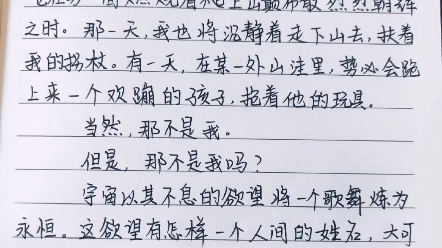 之时。那一天,我也将沉静着走下山去,扶着
我的拐杖。有一天,在某一处山洼里,势必会跑
上来一个欢蹦的孩子,抱着他的玩具。
当然,那不是我。
但是,那不是我吗?
宇宙以其不息的欲望将一个歌舞炼为
永恒。这欲望有怎样一个人间的姓名,大可